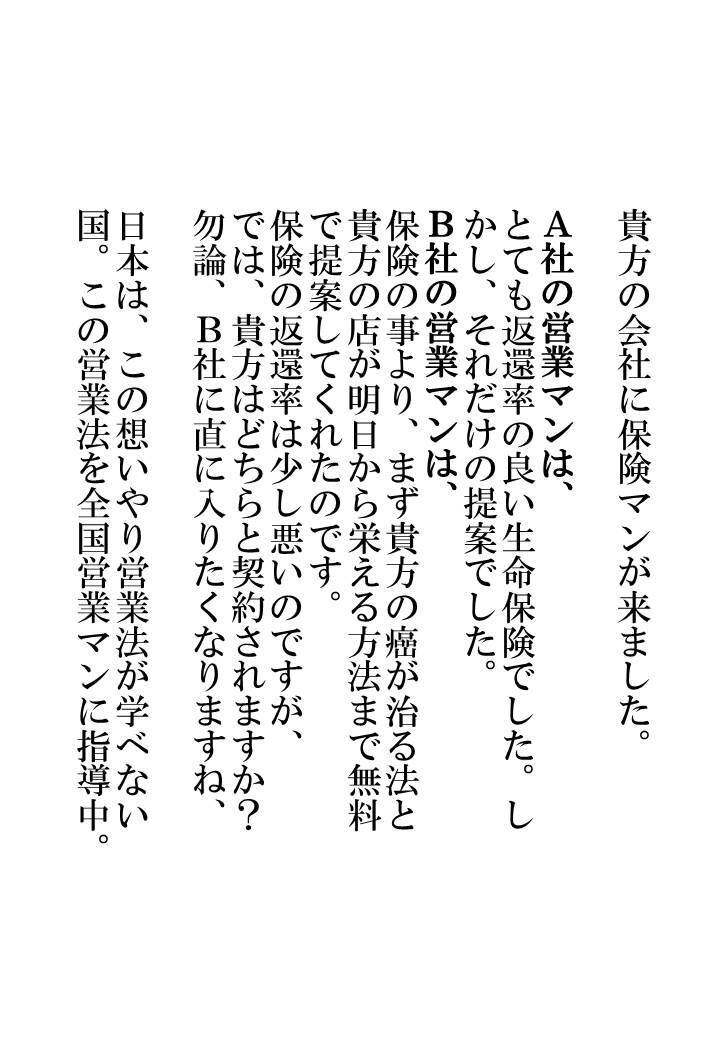 貴方の会社に保険マンが来ました。
A社の営業マンは、
とても返還率の良い生命保険でした。し
かし、それだけの提案でした。
B社の営業マンは、
保険の事より、まず貴方の癌が治る法と
貴方の店が明日から栄える方法まで無料
で提案してくれたのです。
保険の返還率は少し悪いのですが、
では、貴方はどちらと契約されますか?
勿論、B社に直に入りたくなりますね、
日本は、この想いやり営業法が学べない
国。この営業法を全国営業マンに指導中。